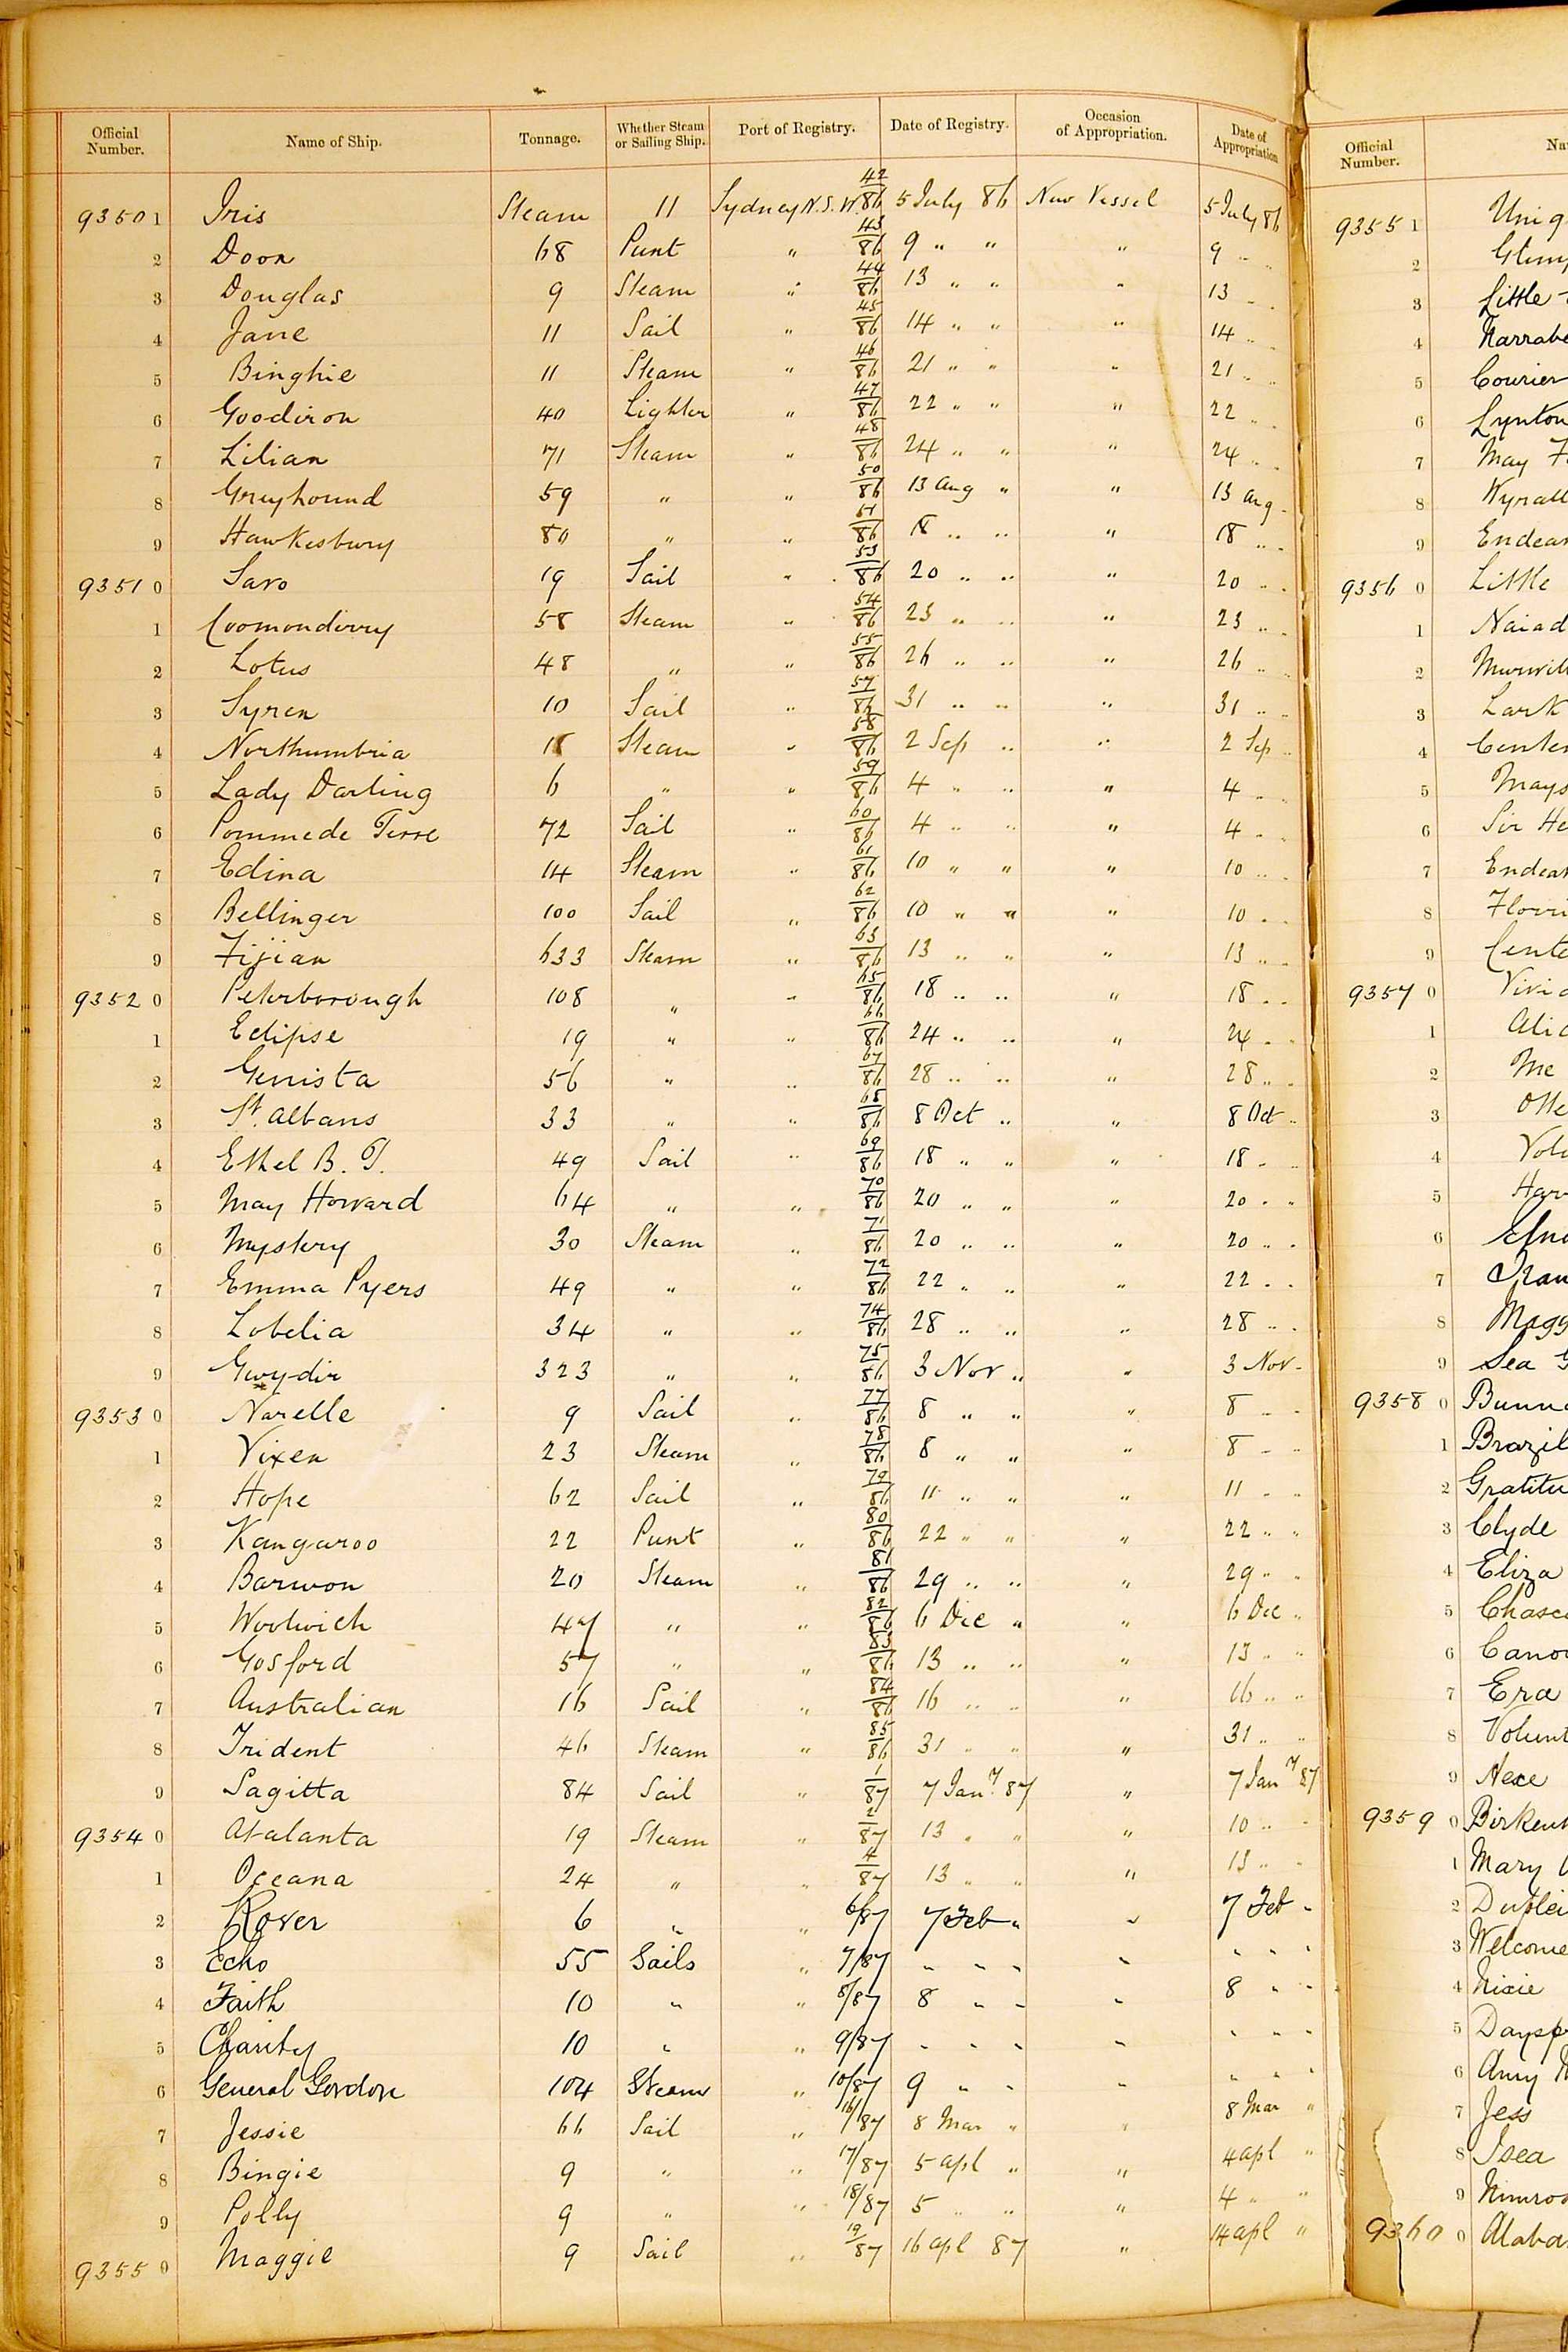 Official Number. Name of Ship. Tonnage. Whether Steam or Sailing Ship. Port of Registry. Date of Registry. Occasion of Appropriation. Date of Appropriation
9350 1 Iris Steam 11 Sydney N.S.W. 42/86 5 July 86 New Vessel 5 July 86
2 Doon 68 Punt " 43/86 9 " " " 9 " "
3 Douglas 9 Steam " 44/86 13 " " " 13 " "
4 Jane 11 Sail " 45/86 14 " " " 14 " "
5 Binghie 11 Steam " 46/86 21 " " " 21 " "
6 Goodiron 40 Lighter " 47/86 22 " " " 22 " "
7 Lilian 71 Steam " 48/86 24 " " " 24 " "
8 Greyhound 59 " " 50/86 13 Aug " " 13 Aug "
9 Hawkesbury 80 " " 51/86 18 " " " 18 " "
9351 0 Savo 19 Sail " 53/86 20 " " " 20 " "
1 Coomonderry 58 Steam " 54/86 23 " " " 23 " "
2 Lotus 48 " " 55/86 26 " " " 26 " "
3 Syren 10 Sail " 57/86 31 " " " 31 " "
4 Northumbria Steam " 58/86 2 Sep " " 2 Sep "
5 Lady Darling 6 " " 59/86 4 " " " 4 " "
6 Pommede Terre 72 Sail " 60/86 4 " " " 4 " "
7 Edina 14 Steam " 61/86 10 " " " 10 " "
8 Bellinger 100 Sail " 62/86 10 " " " 10 " "
9 Fijian 633 Steam " 63/86 13 " " " 13 " "
9352 0 Peterborough 108 " " 65/86 18 " " " 18 " "
1 Eclipse 19 " " 66/86 24 " " " 24 " "
2 Genista 56 " " 67/86 28 " " " 28 " "
3 St. Albans 33 " " 68/86 8 Oct " " 8 Oct "
4 Ethel B. T. 49 Sail " 69/86 18 " " " 18 " "
5 May Howard 64 " " 70/86 20 " " " 20 " "
6 Mystery 30 Steam " 71/86 20 " " " 20 " "
7 Emma Pyers 49 " " 72/86 22 " " " 22 " "
8 Lobelia 34 " " 74/86 28 " " " 28 " "
9 Gwydir 323 " " 75/86 3 Nov " " 3 Nov "
9353 0 Narelle 9 Sail " 77/86 8 " " " 8 " "
1 Vixen 23 Steam " 78/86 8 " " " 8 " "
2 Hope 62 Sail " 79/86 11 " " " 11 " "
3 Kangaroo 22 Punt " 80/86 22 " " " 22 " "
4 Barwon 20 Steam " 81/86 29 " " " 29 " "
5 Woolwich 47 " " 82/86 6 Dec " " 6 Dec "
6 Gosford 57 " " 83/86 13 " " " 13 " "
7 Australian 16 Sail " 84/86 16 " " " 16 " "
8 Trident 46 Steam " 85/86 31 " " " 31 " "
9 Sagitta 84 Sail " 1/87 7 Jany 87 " 7 Jany 87
9354 0 Atalanta 19 Steam " 2/87 13 " " " 10 " "
1 Oceana 24 " " 4/87 13 " " " 13 " "
2 Rover 6 " " 6/87 7 Feb " " 7 Feb "
3 Echo 55 Sails " 7/87 " " " " " " "
4 Faith 10 " " 8/87 8 " " " 8 " "
5 Charity 10 " " 9/87 " " " " " " "
6 General Gordon 104 Steam " 10/87 9 " " " " " "
7 Jessie 66 Sail " 16/87 8 Mar " " 8 Mar "
8 Bingie 9 " " 17/87 5 apl " " 4 apl "
9 Polly 9 " " 18/87 5 " " " 4 " "
9355 0 Maggie 9 Sail " 19/87 16 apl 87 " 14 apl "
Official Number. Na
9355 1 Uniq
2 Glimp
3 Little
4 Narrabe
5 Courier
6 Lynton
7 May
8 Wyrall
9 Endeav
9356 0 Little
1 Naiad
2 Murwill
3 Lark
4 Centen
5 Mays
6 Sir He
7 Endeav
8 Flori
9 Cente
9357 0 Vivi
1 Alic
2 Mc
3 Otte
4 Volu
5 Har
6
7
8 Magg
9 Sea G
9358 0 Bunn
1 Brazil
2 Gratitu
3 Clyde
4 Eliza
5 Chase
6 Cano
7 Era
8 Volunt
9
9359 0 Birken
1 Mary
2 Duplei
3 Welcome
4 Nixie
5 Daysp
6 Amy
7 Jess
8 Isea
9 Nimrod
9360 0 Alaba